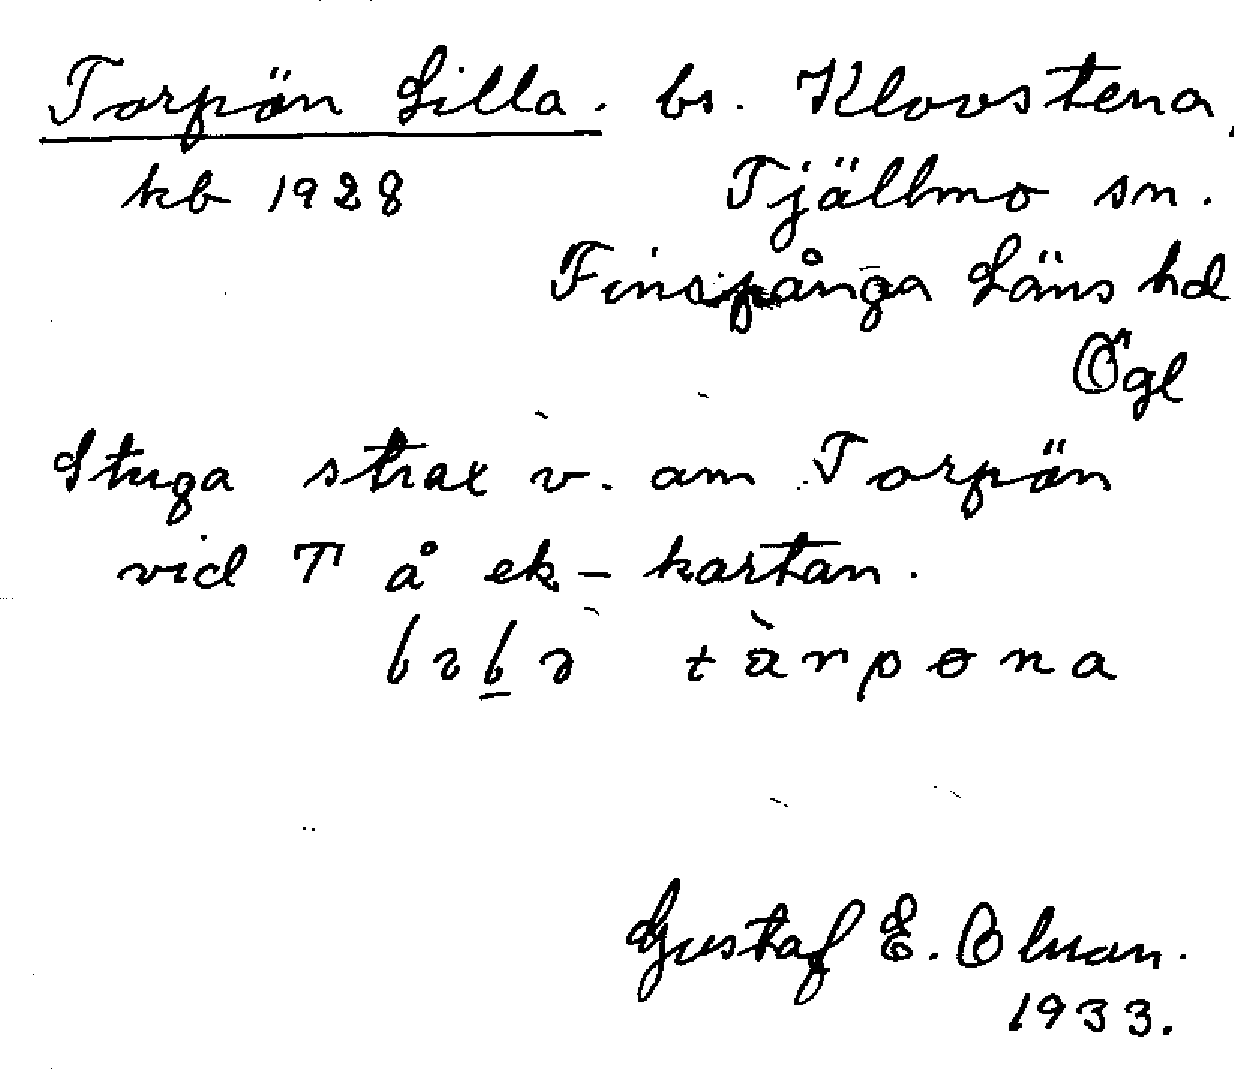 Torpön Lilla. bs. Klovstena,
kb 1928 Tjällmo sn.
Finspånga Läns hd
Ögl
Stuga strax v. om Torpön
vid T å ek-kartan.
tàrpona
Gustaf E. Olman.
1933.